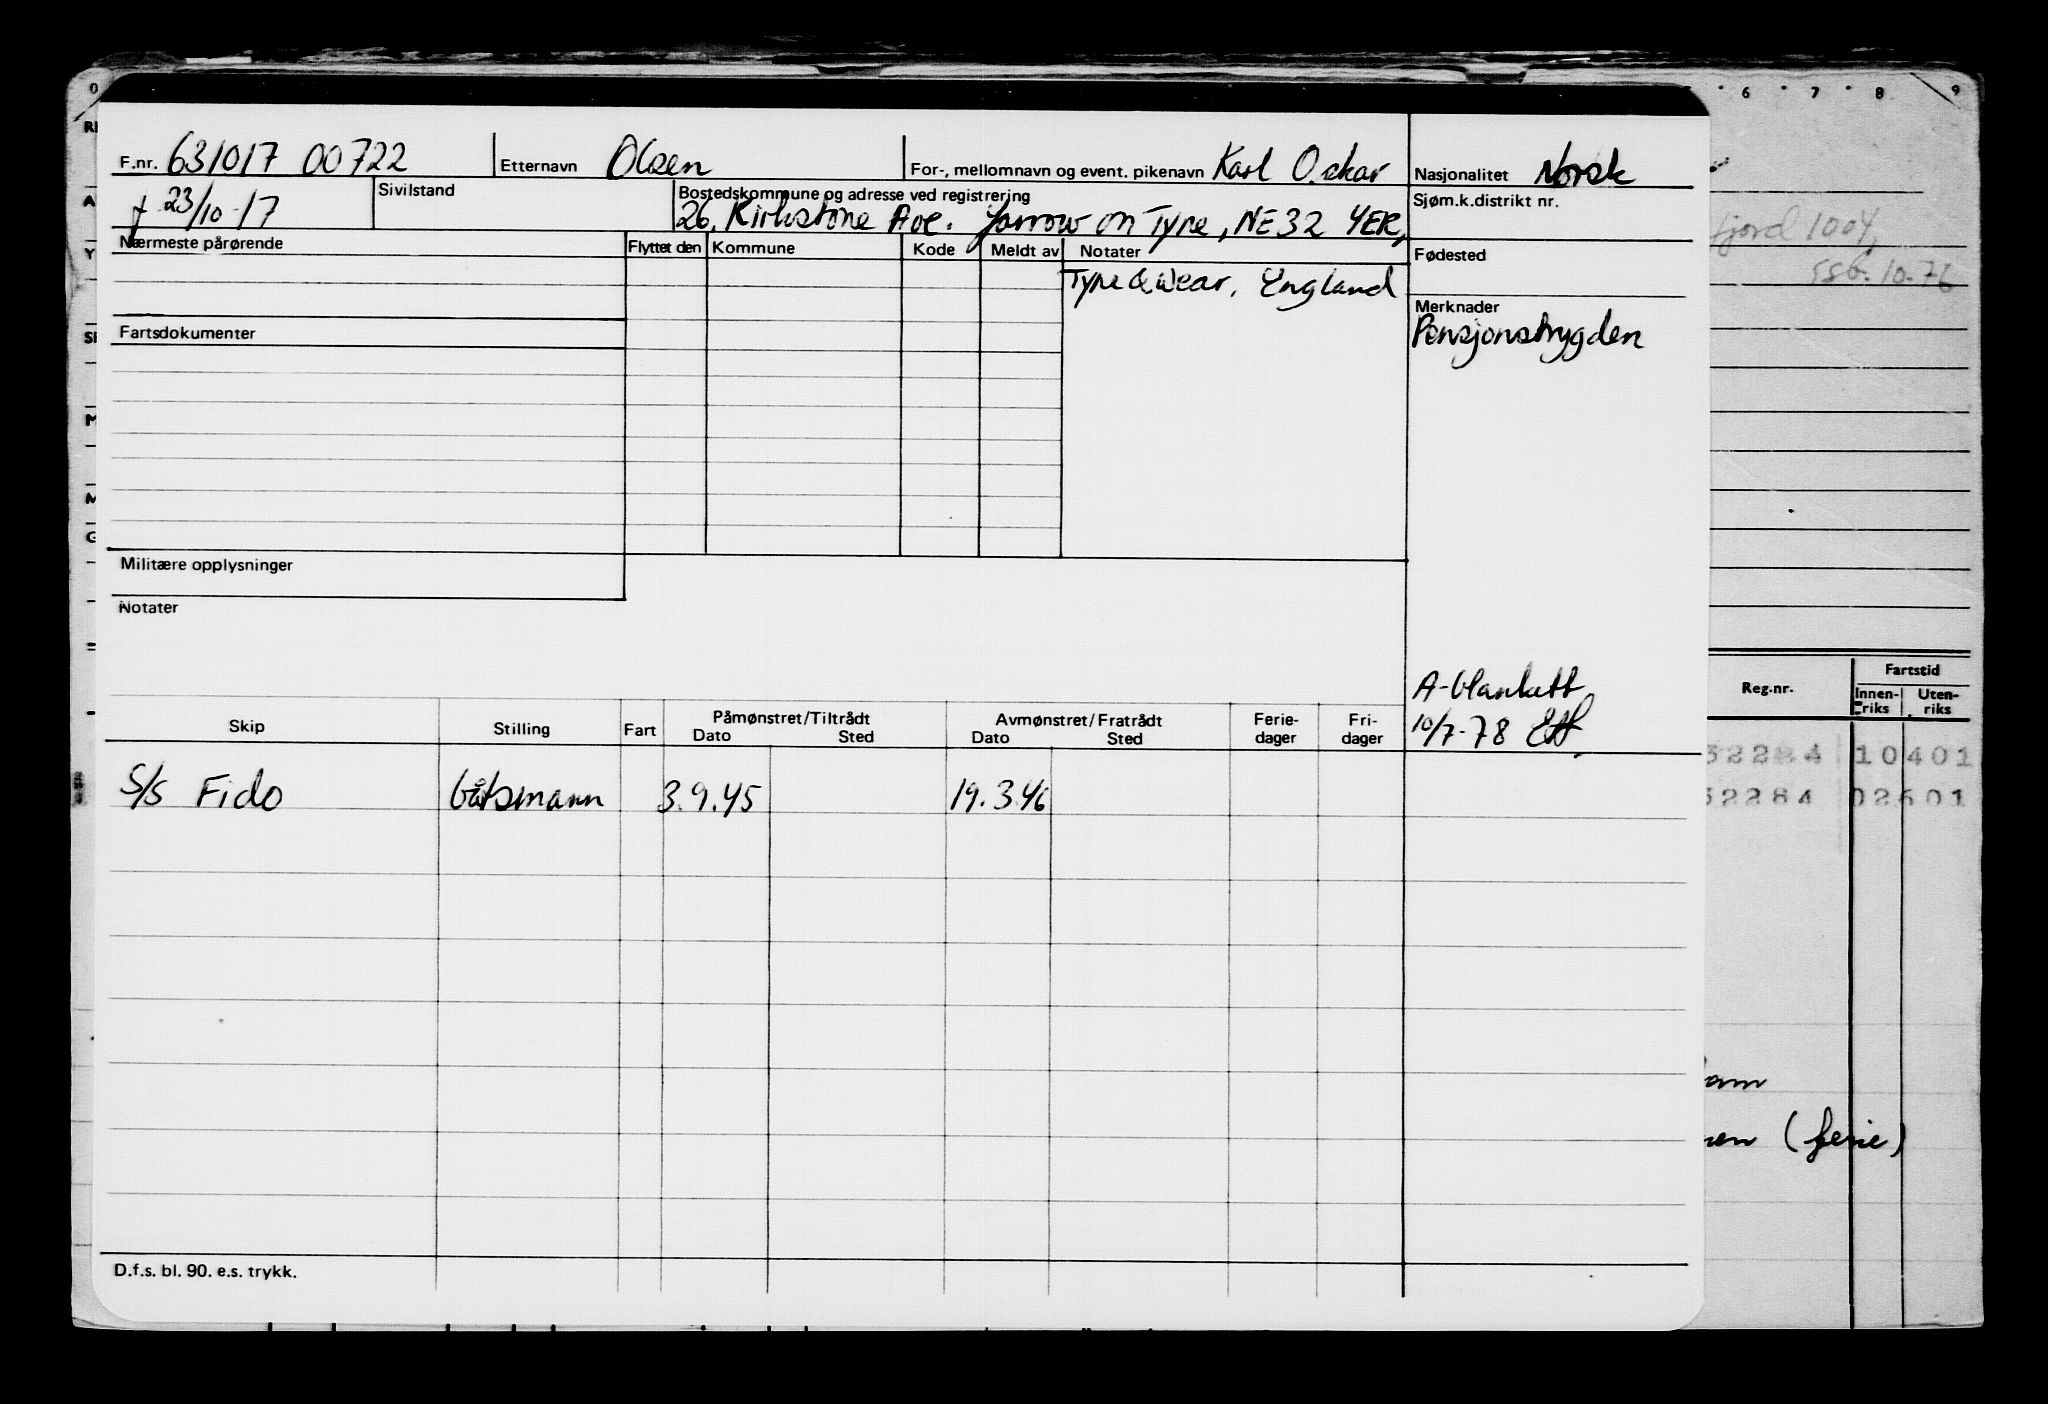 F.nr. 631017 00722 Etternavn Olsen For-, mellomnavn og event. pikenavn Karl Oskar Nasjonalitet Norsk
f 23/10-17 Sivilstand Bostedskommune og adresse ved registrering Sjøm.k.distrikt nr.
26, Kirkstone Ave. Jarrow on Tyne, NE32 YER,
Nærmeste pårørende Flyttet den Kommune Kode Meldt av Notater Fødested
Tyne & Wear, England
Merknader
Pensjonstrygden
Fartsdokumenter
Militære opplysninger
Notater
A-blankett
10/7-78
Skip Stilling Fart Påmønstret/Tiltrådt Dato Sted Avmønstret/Fratrådt Dato Sted Ferie-dager Fri-dager
S/S Fido båtsmann 3.9.45 19.3.46
D.f.s. bl. 90. e.s. trykk.
6 7 8 9
fjord 1004,
10.76
Reg.nr. Fartstid
Innen-riks Uten-riks
32284 10401
52284 02601
(ferie)